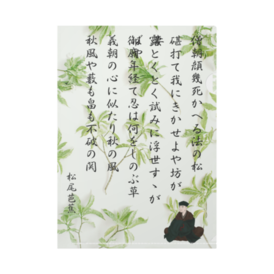 僧朝顔幾死かへる法の松
碪打て我にきかせよや坊が妻
露とくとく試に浮世すゝがばや
御廟年経て忍は何をしのぶ草
義朝の心に似たり秋の風
秋風や藪も畠も不破の関
松尾芭蕉